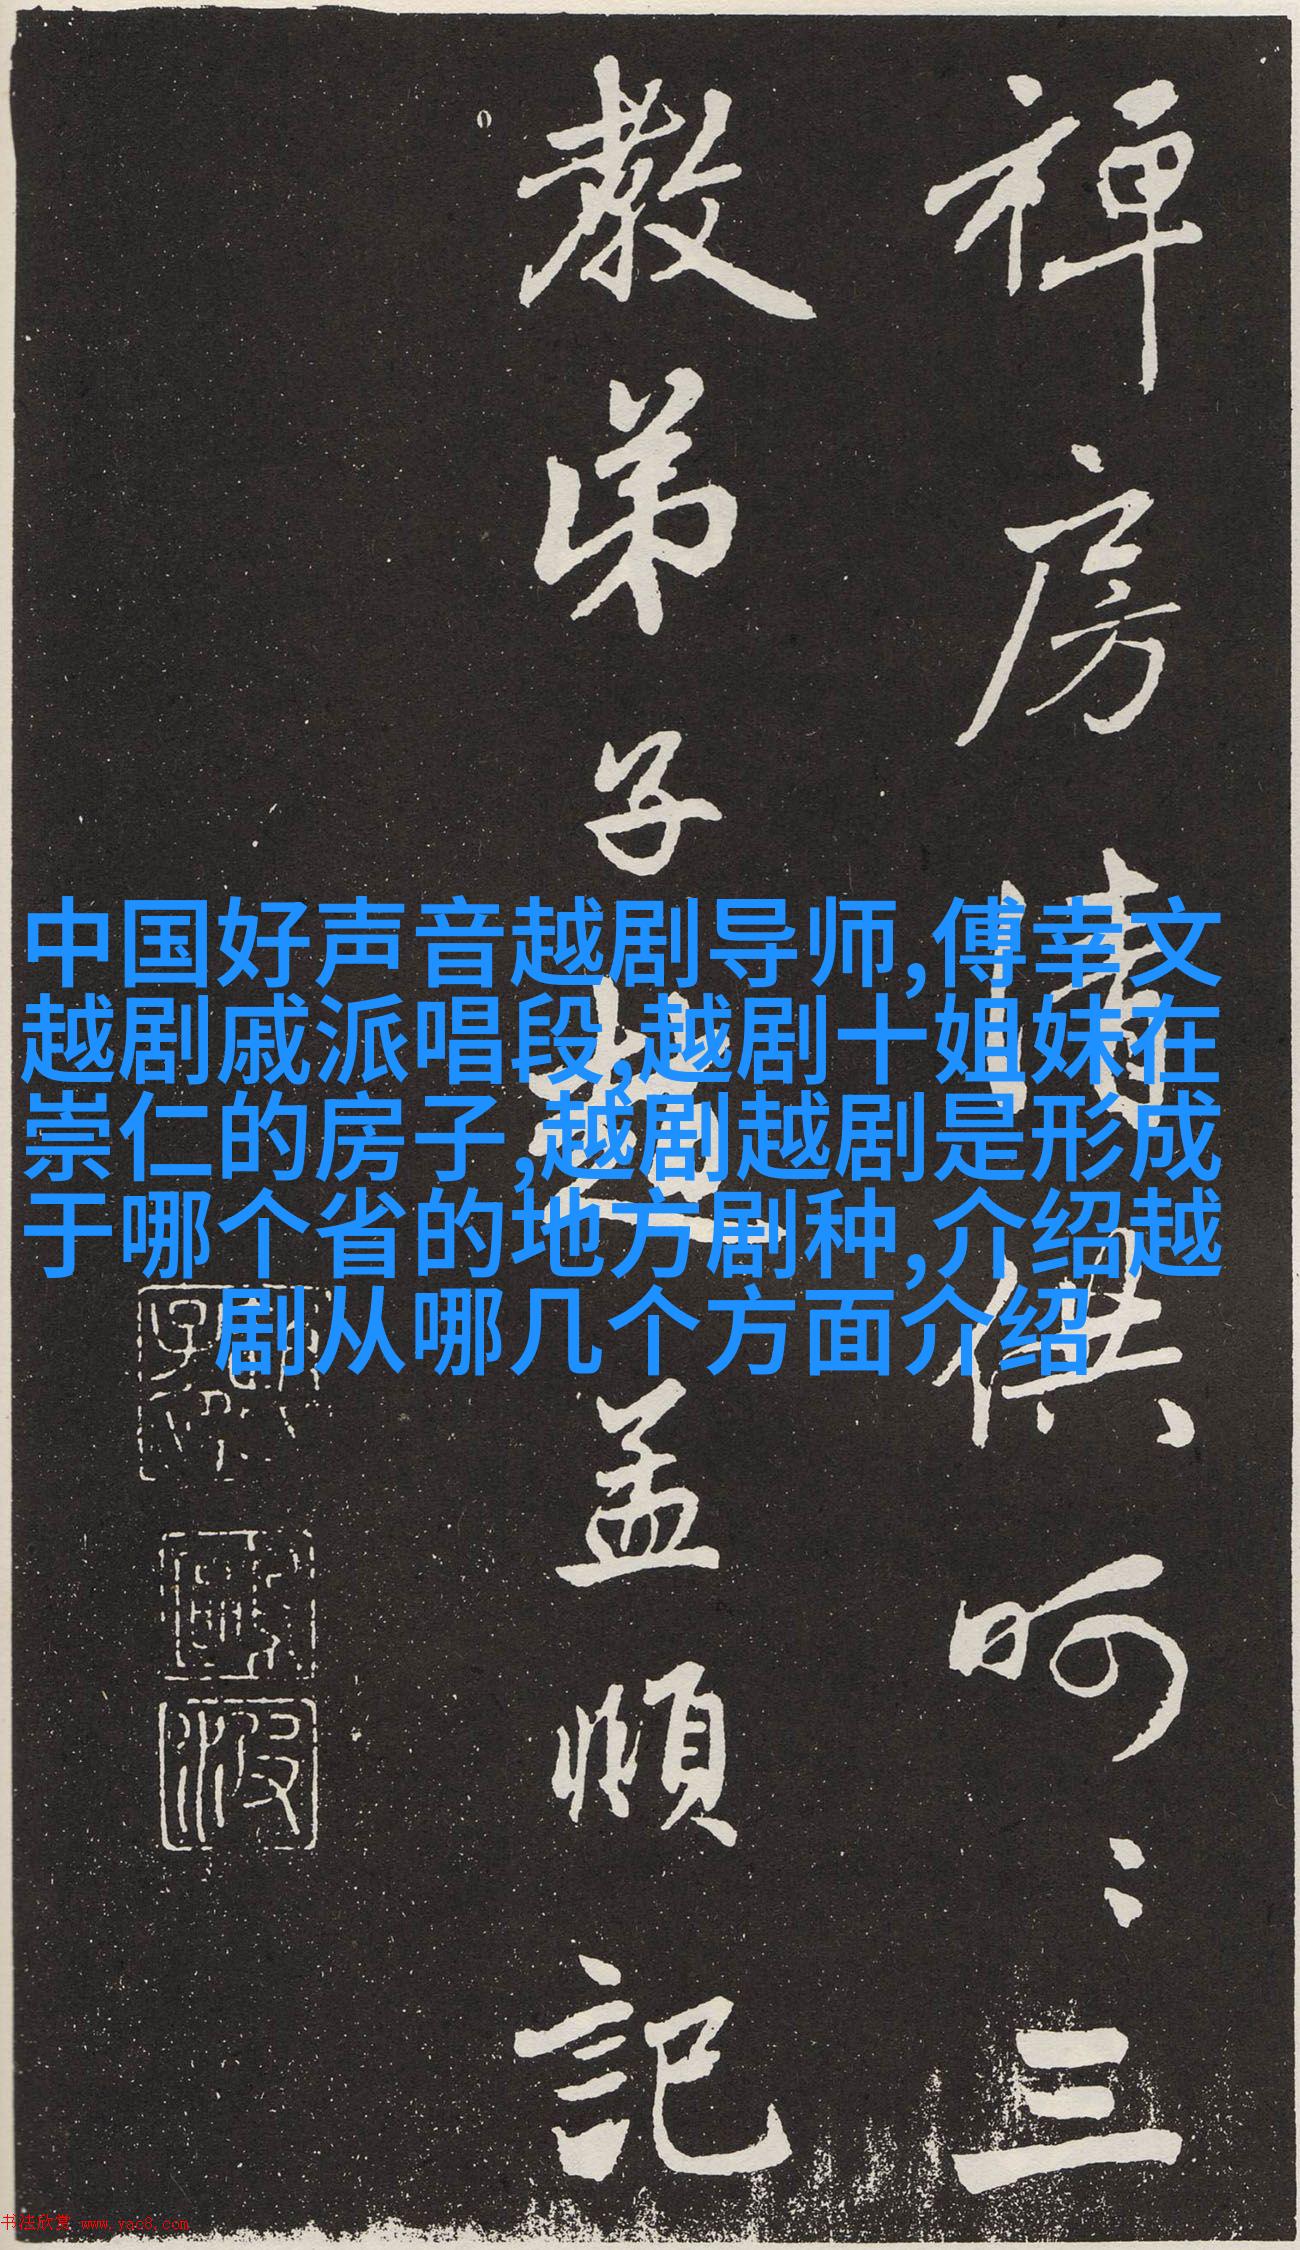 禅房情供呵〻三
教弟子趙孟頫記
中国好声音越剧导师,傅幸文
越剧戚派唱段,越剧十姐妹在
崇仁的房子,越剧越剧是形成
于哪个省的地方剧种,介绍越
剧从哪几个方面介绍
书法欣赏 www.yac8.com